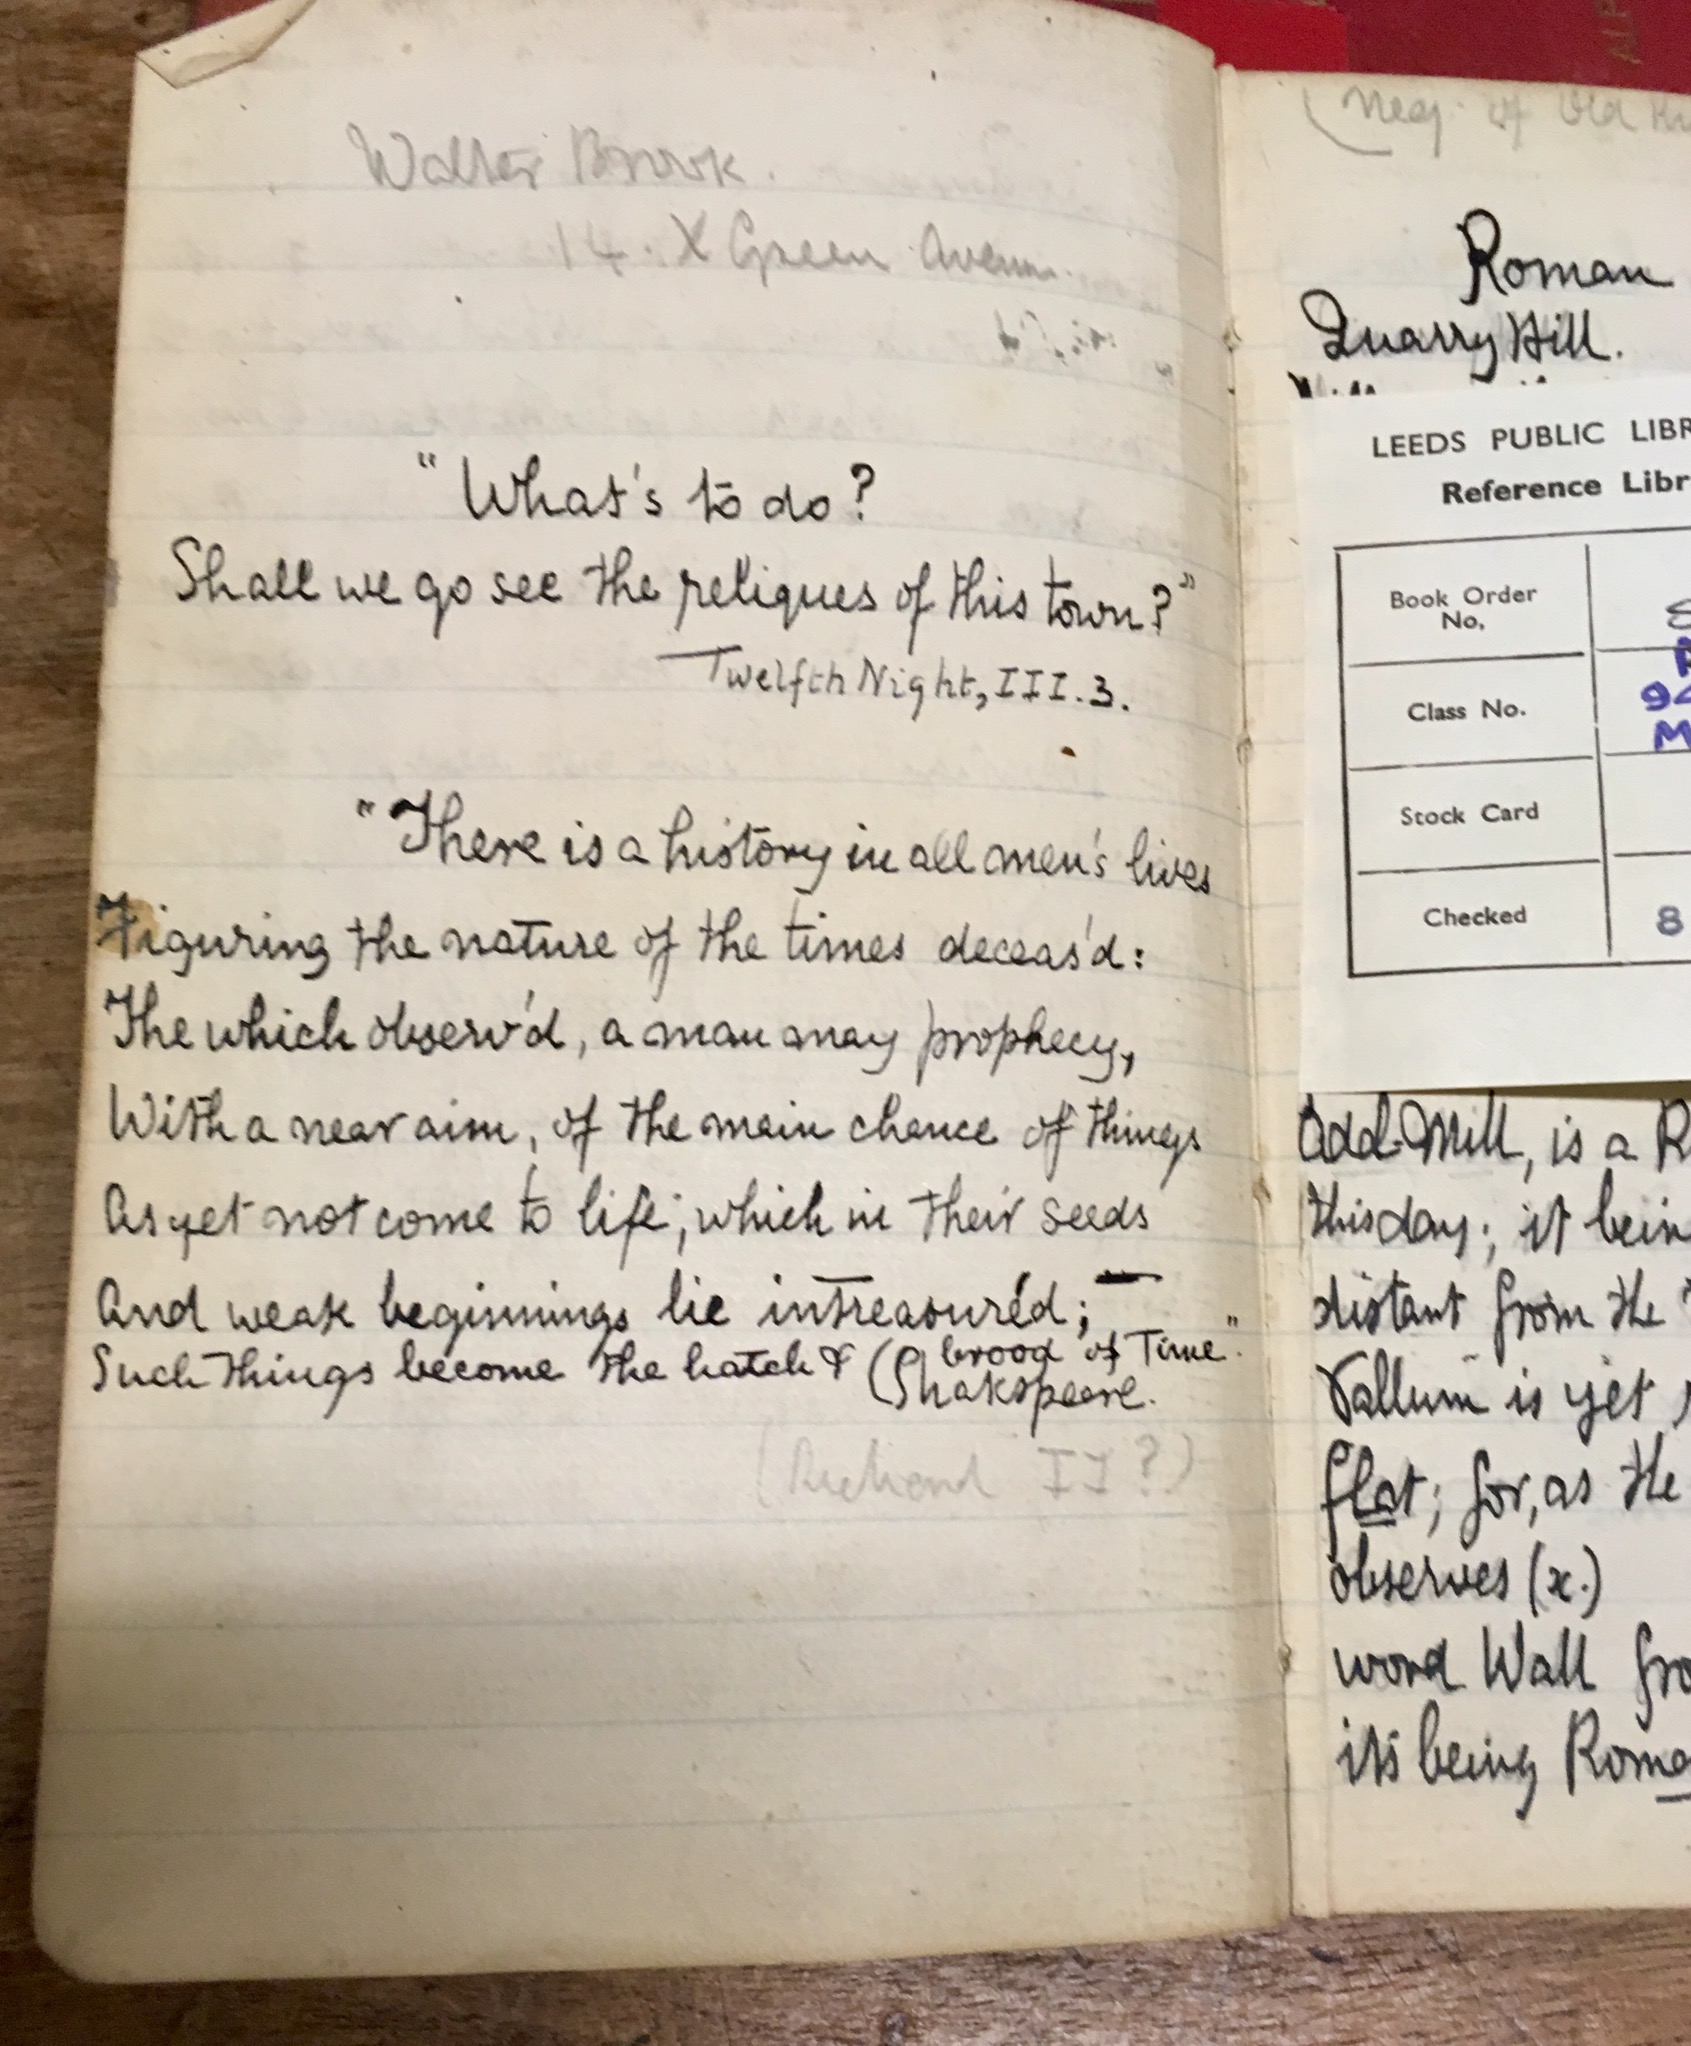 Walter Brook.
14. X Green Avenue.
"What's to do?
Shall we go see the reliques of this town?"
Twelfth Night, III.3.
"There is a history in all men's lives
Figuring the nature of the times deceas'd:
The which observ'd, a man may prophecy,
With a near aim, of the main chance of things
As yet not come to life; which in their seeds
And weak beginnings lie intreasured; —
Such things become the hatch & brood of Time."
(Shakspeare.
(Richard II?)
(Neg. of Old
Roman
Quarry Hill.
LEEDS PUBLIC LIBR
Reference Libr
Book Order
No.
Class No.
94
M
Stock Card
Checked
8
Odd-Mill, is a R
this day; it bein
distant from the
Vallum is yet
flat; for, as the
observes (x.)
word Wall fro
its being Roma